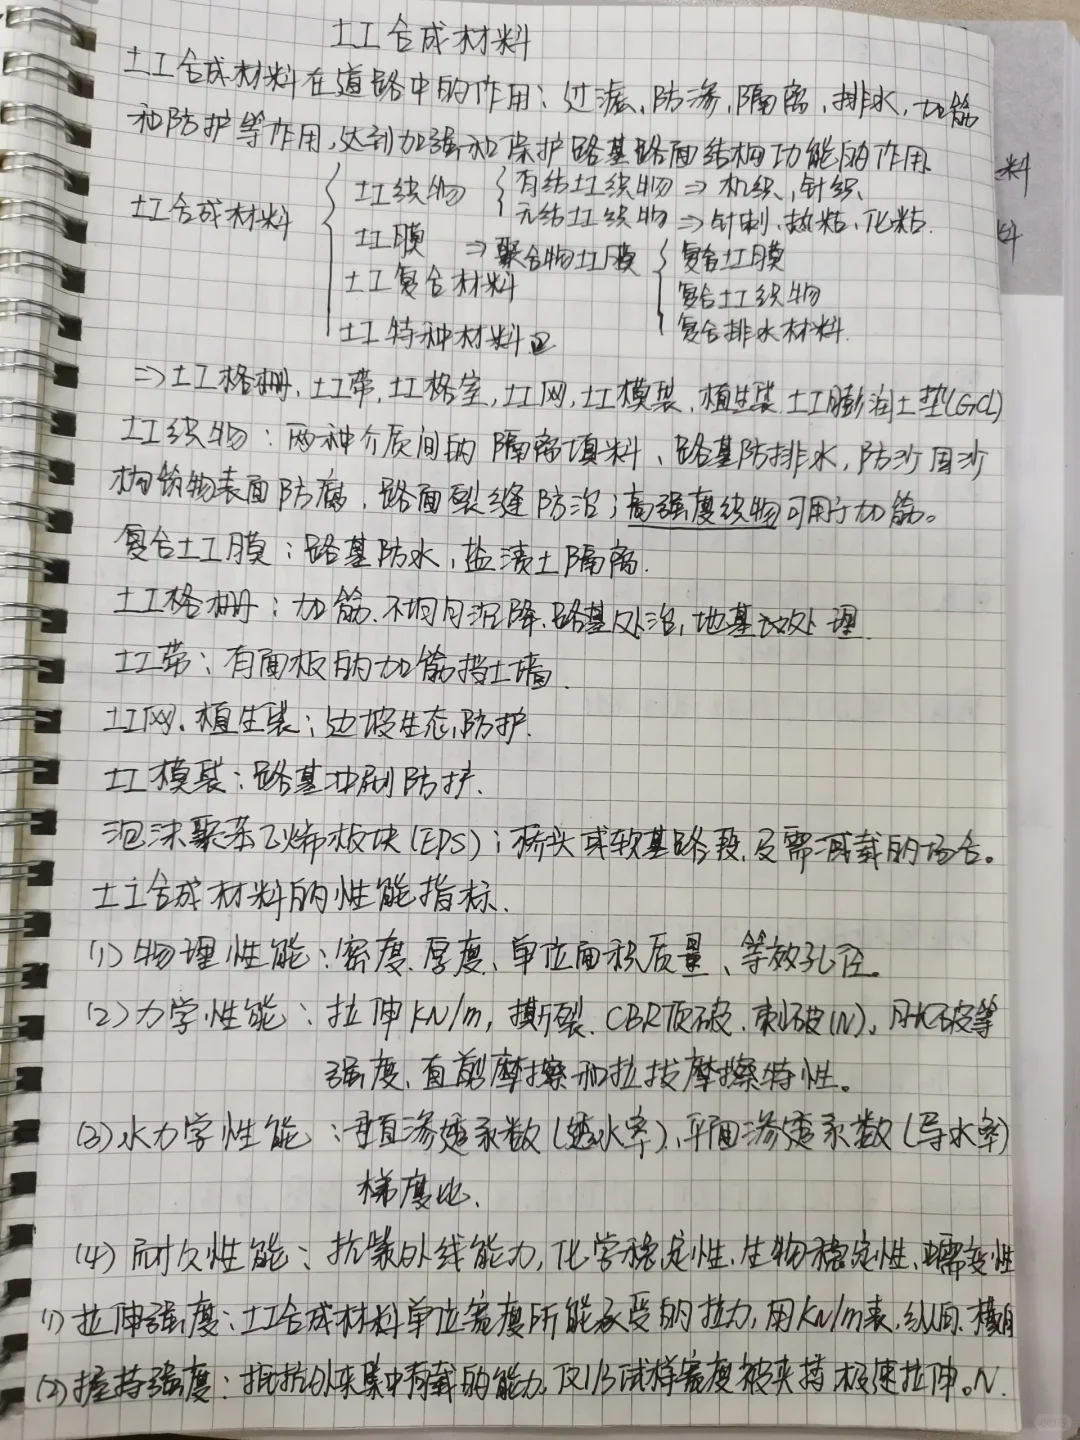 土工合成材料
土工合成材料在道路中的作用：过滤、防渗、隔离、排水、加筋
和防护等作用，达到加强和保护路基路面结构功能的作用
土工合成材料
土工织物 有结土工织物 ⇒ 机织、针织
无结土工织物 ⇒ 针刺、热粘、化粘.
土工膜 ⇒ 聚合物土工膜 复合土工膜
土工复合材料 复合土工织物
土工特种材料 复合排水材料.
⇒ 土工格栅、土工带、土工格室、土工网、土工模袋、植生袋、土工膨润土垫(GCL)
土工织物：两种介质间的隔离填料、路基防排水，防沙固沙
构筑物表面防腐，路面裂缝防治；高强度织物可用于加筋。
复合土工膜：路基防水，盐渍土隔离.
土工格栅：加筋.不均匀沉降.路基处治，地基处理
土工带：有面板的加筋挡土墙.
土工网、植生袋：边坡生态防护.
土工模袋：路基冲刷防护.
泡沫聚苯乙烯板块(EPS)：桥头或软基路段，及需减载的场合。
土工合成材料的性能指标.
(1) 物理性能：密度、厚度、单位面积质量、等效孔径。
(2) 力学性能：拉伸KN/m，撕裂、CBR顶破、刺破(N)、胀破等
强度、直剪摩擦和拉拔摩擦特性。
(3) 水力学性能：垂直渗透系数(透水率)、平面渗透系数(导水率)
梯度比.
(4) 耐久性能：抗紫外线能力，化学稳定性、生物稳定性、蠕变性
(1) 拉伸强度：土工合成材料单位宽度所能承受的拉力，用KN/m表，纵向、横向
(2) 握持强度：抵抗外来集中荷载的能力，仅1/3试样宽度被夹持极速拉伸。N.
料